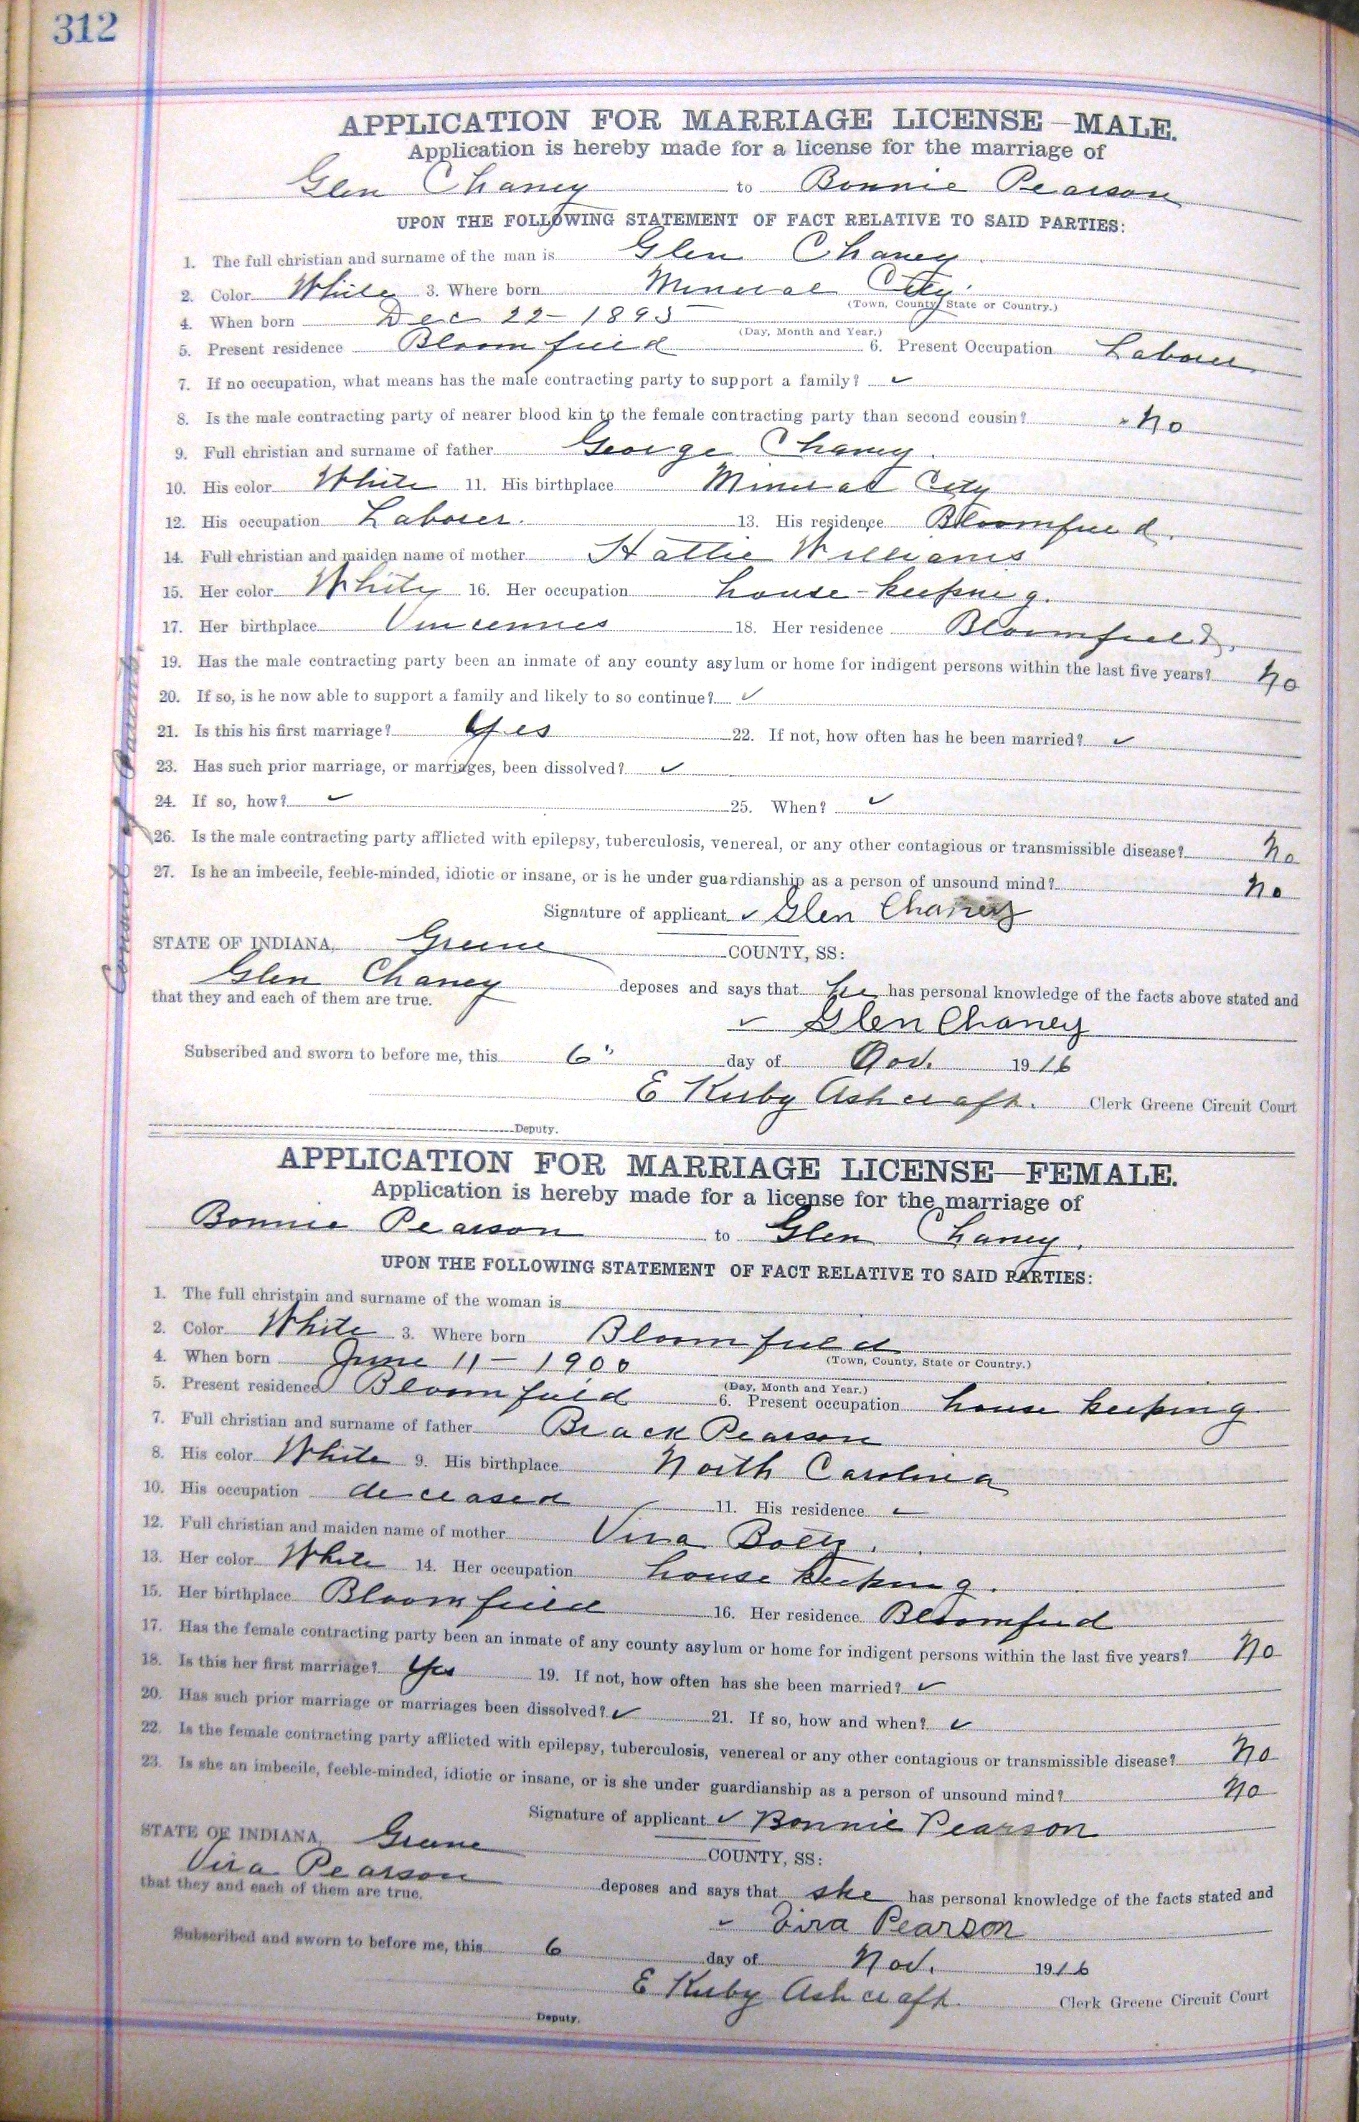 312
APPLICATION FOR MARRIAGE LICENSE—MALE.
Application is hereby made for a license for the marriage of
Glen Chaney to Bonnie Pearson
UPON THE FOLLOWING STATEMENT OF FACT RELATIVE TO SAID PARTIES:
1. The full christian and surname of the man is Glen Chaney.
2. Color White 3. Where born Mineral City.
(Town, County, State or Country.)
4. When born Dec 22 - 1895
(Day, Month and Year.)
5. Present residence Bloomfield 6. Present Occupation Laborer.
7. If no occupation, what means has the male contracting party to support a family? ✓
8. Is the male contracting party of nearer blood kin to the female contracting party than second cousin? No
9. Full christian and surname of father George Chaney.
10. His color White 11. His birthplace Mineral City
12. His occupation Laborer. 13. His residence Bloomfield.
14. Full christian and maiden name of mother Hattie Williams
15. Her color White 16. Her occupation house-keeping.
17. Her birthplace Vincennes 18. Her residence Bloomfield.
19. Has the male contracting party been an inmate of any county asylum or home for indigent persons within the last five years? No
20. If so, is he now able to support a family and likely to so continue? ✓
21. Is this his first marriage? Yes 22. If not, how often has he been married? ✓
23. Has such prior marriage, or marriages, been dissolved? ✓
24. If so, how? ✓ 25. When? ✓
26. Is the male contracting party afflicted with epilepsy, tuberculosis, venereal, or any other contagious or transmissible disease? No
27. Is he an imbecile, feeble-minded, idiotic or insane, or is he under guardianship as a person of unsound mind? No
Signature of applicant ✓ Glen Chaney
STATE OF INDIANA, Greene COUNTY, SS:
Glen Chaney deposes and says that he has personal knowledge of the facts above stated and
that they and each of them are true.
✓ Glen Chaney
Subscribed and sworn to before me, this 6" day of Nov. 1916
E Kirby Ashcraft. Clerk Greene Circuit Court
Deputy.
Consent of Parents.
APPLICATION FOR MARRIAGE LICENSE—FEMALE.
Application is hereby made for a license for the marriage of
Bonnie Pearson to Glen Chaney.
UPON THE FOLLOWING STATEMENT OF FACT RELATIVE TO SAID PARTIES:
1. The full christain and surname of the woman is
2. Color White 3. Where born Bloomfield
(Town, County, State or Country.)
4. When born June 11 - 1900
(Day, Month and Year.)
5. Present residence Bloomfield 6. Present occupation house keeping
7. Full christian and surname of father Brack Pearson
8. His color White 9. His birthplace North Carolina
10. His occupation deceased 11. His residence ✓
12. Full christian and maiden name of mother Vira
13. Her color White 14. Her occupation house keeping.
15. Her birthplace Bloomfield 16. Her residence Bloomfield
17. Has the female contracting party been an inmate of any county asylum or home for indigent persons within the last five years? No
18. Is this her first marriage? Yes 19. If not, how often has she been married? ✓
20. Has such prior marriage or marriages been dissolved? ✓ 21. If so, how and when? ✓
22. Is the female contracting party afflicted with epilepsy, tuberculosis, venereal or any other contagious or transmissible disease? No
23. Is she an imbecile, feeble-minded, idiotic or insane, or is she under guardianship as a person of unsound mind? No
Signature of applicant ✓ Bonnie Pearson
STATE OF INDIANA, Greene COUNTY, SS:
Vira Pearson deposes and says that she has personal knowledge of the facts stated and
that they and each of them are true.
✓ Vira Pearson
Subscribed and sworn to before me, this 6 day of Nov. 1916
E Kirby Ashcraft. Clerk Greene Circuit Court
Deputy.